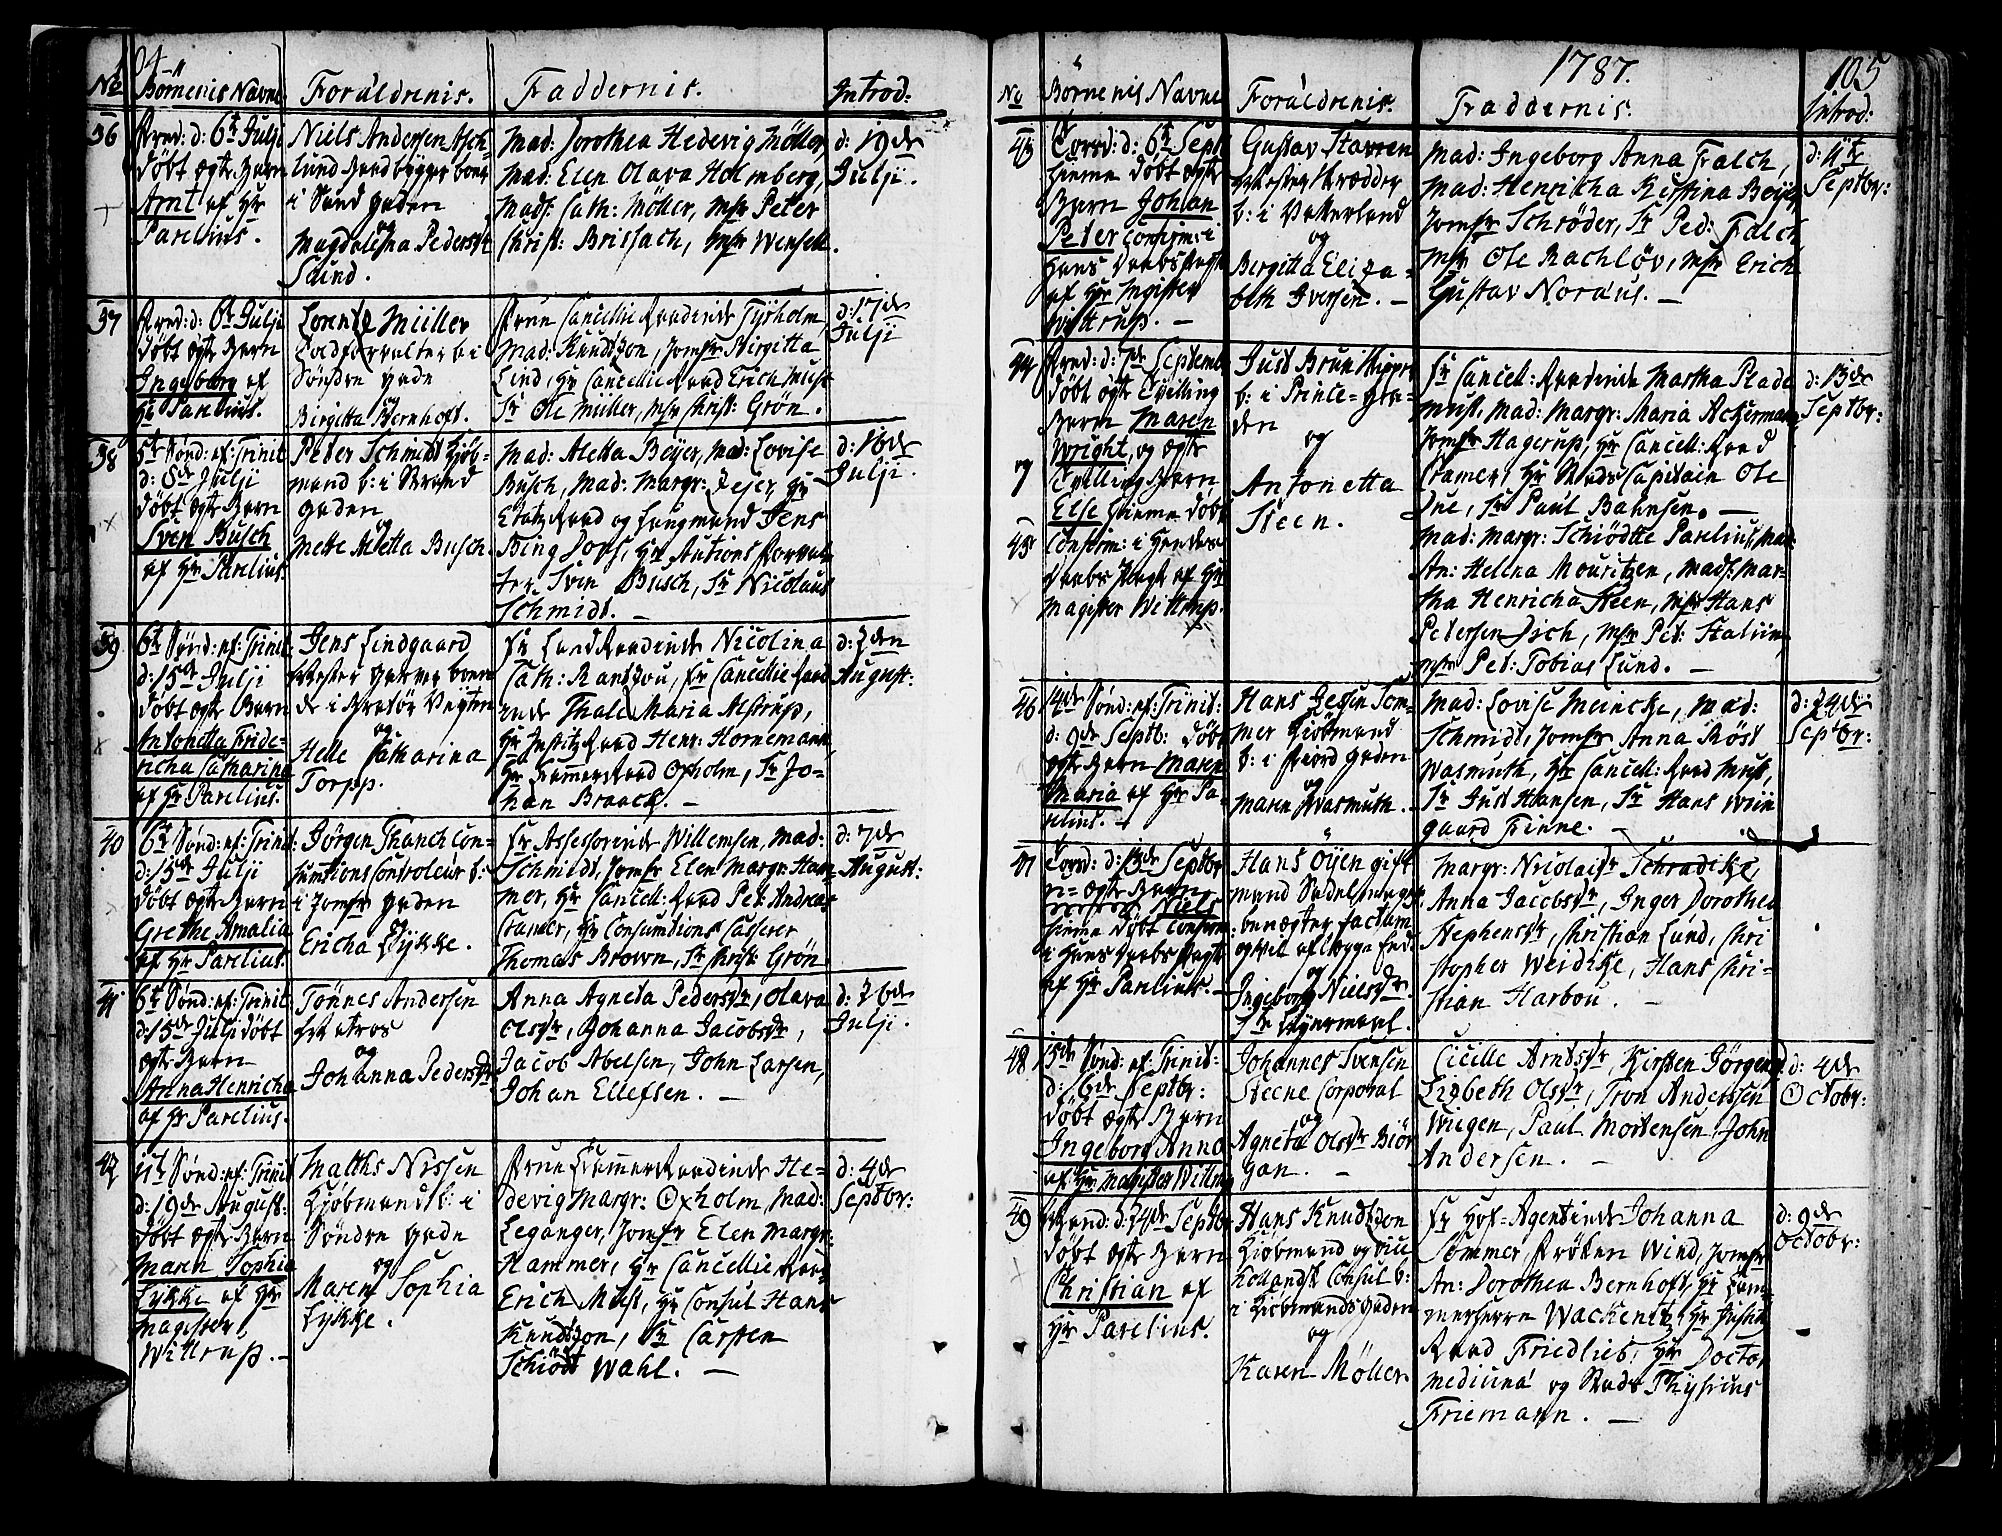 104
No Børnenis Navne. Forældrenis. Faddernis. Introd:
36
Fred: d: 6te Julji
døbt ægte Barn
Arnt af Hr
Parelius.
Niels Andersen Asch-
lund Haandbygger boen
i Sand gaden
og
Magdalena Pedersdr
Lund.
Mad: Dorothea Hedevig Møller,
Mad: Elen Olava Holmberg,
Mads: Cath: Møller, Msr Peter
Christ: Brissach, Msr Wensell.
d: 19de
Julji.
37
Fred: d: 6te Julji
døbt ægte Barn
Ingeborg af
Hr Parelius.
Lorentz Müller
Toldforvalter b: i
Søndre gade
og
Birgitta Bernhoft.
Frue Cancellie Raadinde Tyrholm,
Mad: Knudtzon, Jomfr Birgitta
Lind, Hr Cancellie Raad Erich Must
Sr Ole Müller, Msr Christ: Grøn.
d: 17de
Julji
38
5te Sønd: ef: Trinit
d: 8de Julji
døbt ægte Barn
Sven Busch
af Hr Parelius.
Peter Schmidt Kjøb-
mand b: i Strand
gaden
og
Mette Aletta Busch.
Mad: Aletta Beyer, Mad: Lovise
Busch, Mad: Margr: Jejer, Hr
Etatz Raad og Laugmand Jens
Bing Dons, Hr Auctions Forval-
ter Sven Busch, Sr Nicolaus
Schmidt.
d: 16de
Julji
39
6te Sønd: ef: Trinit
d: 15de Julji
døbt ægte Barn
Antonetta Fride-
richa Catharina
af Hr Parelius.
Jens Lindgaard
Mester Garver boen
de i Vejten
og
Helle Catharina
Torpp.
Fr Land Raadinde Nicolina
Cath: Rantzou, Fr Cancellie Raad
inde Thale Maria Alstrup,
Hr Justitz Raad Henr: Hornemann,
Hr Kammer Raad Oxholm, Sr Jo-
han Braack. –
d: 2den
August:
40
6te Sønd: ef: Trinit
d: 15de Julji
døbt ægte Barn
Grethe Amalia
af Hr Parelius.
Jørgen Thanch Con-
sumtions Controleur b:
i Jomfr gaden
og
Ericha Lykke.
Fr Assessorinde Willemsen, Mad:
Schmidt, Jomfr Elen Margr: Ham-
mer, Hr Cancell: Raad Pet: Andreas
Cramer, Hr Consumtions Casserer
Thomas Brown, Sr Christ: Grøn
d: 7de
August:
41
6te Sønd: ef: Trinit
d: 15de Julji døbt
ægte Barn
Anna Henricha
af Hr Parelius.
Tønnes Andersen
Matros
og
Johanna Pedersdr
Anna Agneta Pedersdr, Olava
Olsdr, Johanna Jacobsdr,
Jacob Abelsen, John Larsen,
Johan Ellefsen. –
d: 26de
Julji.
42
11te Sønd: ef: Trinit
d: 19de August:
døbt ægte Barn
Maren Sophia
Lykke af Hr
Magister
Wittrup. –
Matths Nissen
Kjøbmand b: i
Søndre gade
og
Maren Sophia
Lykke.
Frue Kammer Raadinde He-
devig Margr: Oxholm, Mad:
Leganger, Jomfr Elen Margr:
Hammer, Hr Cancellie Raad
Erich Must, Hr Consul Hans
Knudtzon, Sr Carsten
Schiødt Wahl. –
d: 4de
Septbr:
1787.
105
No Børnenis Navne Forældrenis. Faddernis. Introd:
43
Torsd: d: 6te Sept
hiemme døbt ægte
Barn Johan
Peter Confirm: i
Hans Daabs Pagt
af Hr Magister
Wittrup. –
Gustav Stavren
Mester Skrædder
b: i Vatterland
og
Bergitta Eliza-
beth Iversen. –
Mad: Ingeborg Anna Falch,
Mad: Henricha Kistina Beyer,
Jomfr Schrøder, Sr Ped: Falch,
Msr Ole Rachløv, Msr Erich
Gustav Noræus. –
d: 11te
Septbr:
44
Fred: d: 7de Septemb
døbt ægte Tvilling
Barn Maren
Wright, og ægte
og
Tvilling Barn
Else hiemme døbt
45
Confirm: i Hendes
Daabs Pagt af Hr
Magister Wittrup.
Just Brun
b: i Printz-ga-
den
og
Antonetta
Steen.
Fr Cancell: Raadinde Martha Plade
Must, Mad: Margr: Maria Ackermann
Jomfr Hagerup, Hr Cancell: Raad
Cramer, Hr Stads Capitain Ole
Due, Sr Paul Bahnsen. –
Mad: Margr: Schiødtte Parelius, Mad:
An: Hellna Mouritzen, Mads: Mar-
tha Henricha Steen, Msr Hans
Petersen Dich, Msr Pet: Stalum
Msr Pet: Tobias Lund. –
d: 13de
Septbr:
46
14de Sønd: ef: Trinit:
d: 9de Septb: døbt
ægte Barn Maren
Maria af Hr Pa-
relius. –
Hans Jessen Som-
mer Kjøbmand
b: i Fiord gaden
og
Maren Wasmuth.
Mad: Lovise Meincke, Mad:
Schmidt, Jomfr Anna Røst
Wasmuth, Hr Cancell: Raad Must,
Sr Just Hansen, Sr Hans Wiin
gaard Finne. –
d: 24de
Septbr:
47
Torsd: d: 13de Septbr
u-ægte Barn
Niels
hiemme døbt Confirm:
i Hans Daabs Pagt
af Hr Parelius. –
Hans Øyen gift
mand Sadelmager
benægter factum
og vil aflægge Eed
og
Ingeborg Nielsdr.
1ste Leyermaal.
Margr: Nicolaisdr Schradike,
Anna Jacobsdr, Inger Dorothea
Stephensdr, Christian Lund, Chri
stopher Weidike, Hans Chri-
stian Harbou. –
48
15de Sønd: ef: Trinit:
d: 16de Septbr:
døbt ægte Barn
Ingeborg Anna
af Hr Magister Wittrup
Johannes Svensen
Steene Corporal
og
Agneta Olsdr Biør
gan. –
Cicille Arntsdr, Kirsten Jørgensd
Lisbeth Olsdr, Tron Anderssen
Wiigen, Paul Mortensen, John
Andersen. –
d: 4de
Octobr:
49
Mand: d: 24de Septbr
døbt ægte Barn
Christian af
Hr Parelius.
Hans Knudtzon
Kjøbmand og
Hollandsk Consul b:
i Kjøbmandsgaden
og
Karen Møller
Fr Hof-Agentinde Johanna
Sommer, Frøken Wind, Jomfr
An: Dorothea Bernhoft, Hr Kam-
merherre Wackenitz, Hr Justitz
Raad Friedlieb, Hr Doctor
Medicinæ og Stads Physicus
Friemann. –
d: 9de
Octobr: